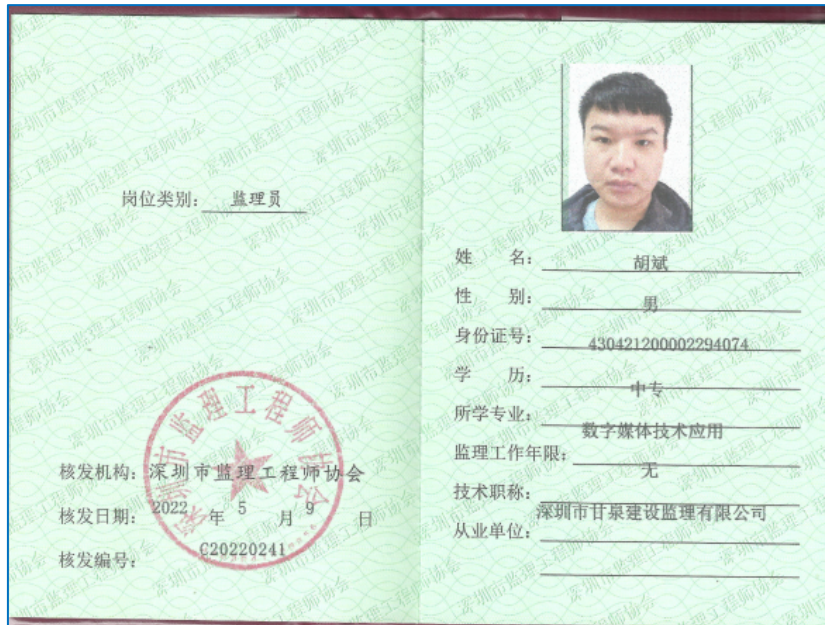 岗位类别: 监理员
核发机构: 深圳市监理工程师协会
核发日期: 2022 年 5 月 9 日
核发编号: C20220241
深圳市监理工程师协会
姓 名: 胡斌
性 别: 男
身份证号: 430421200002294074
学 历: 中专
所学专业: 数字媒体技术应用
监理工作年限: 无
技术职称:
从业单位: 深圳市甘泉建设监理有限公司